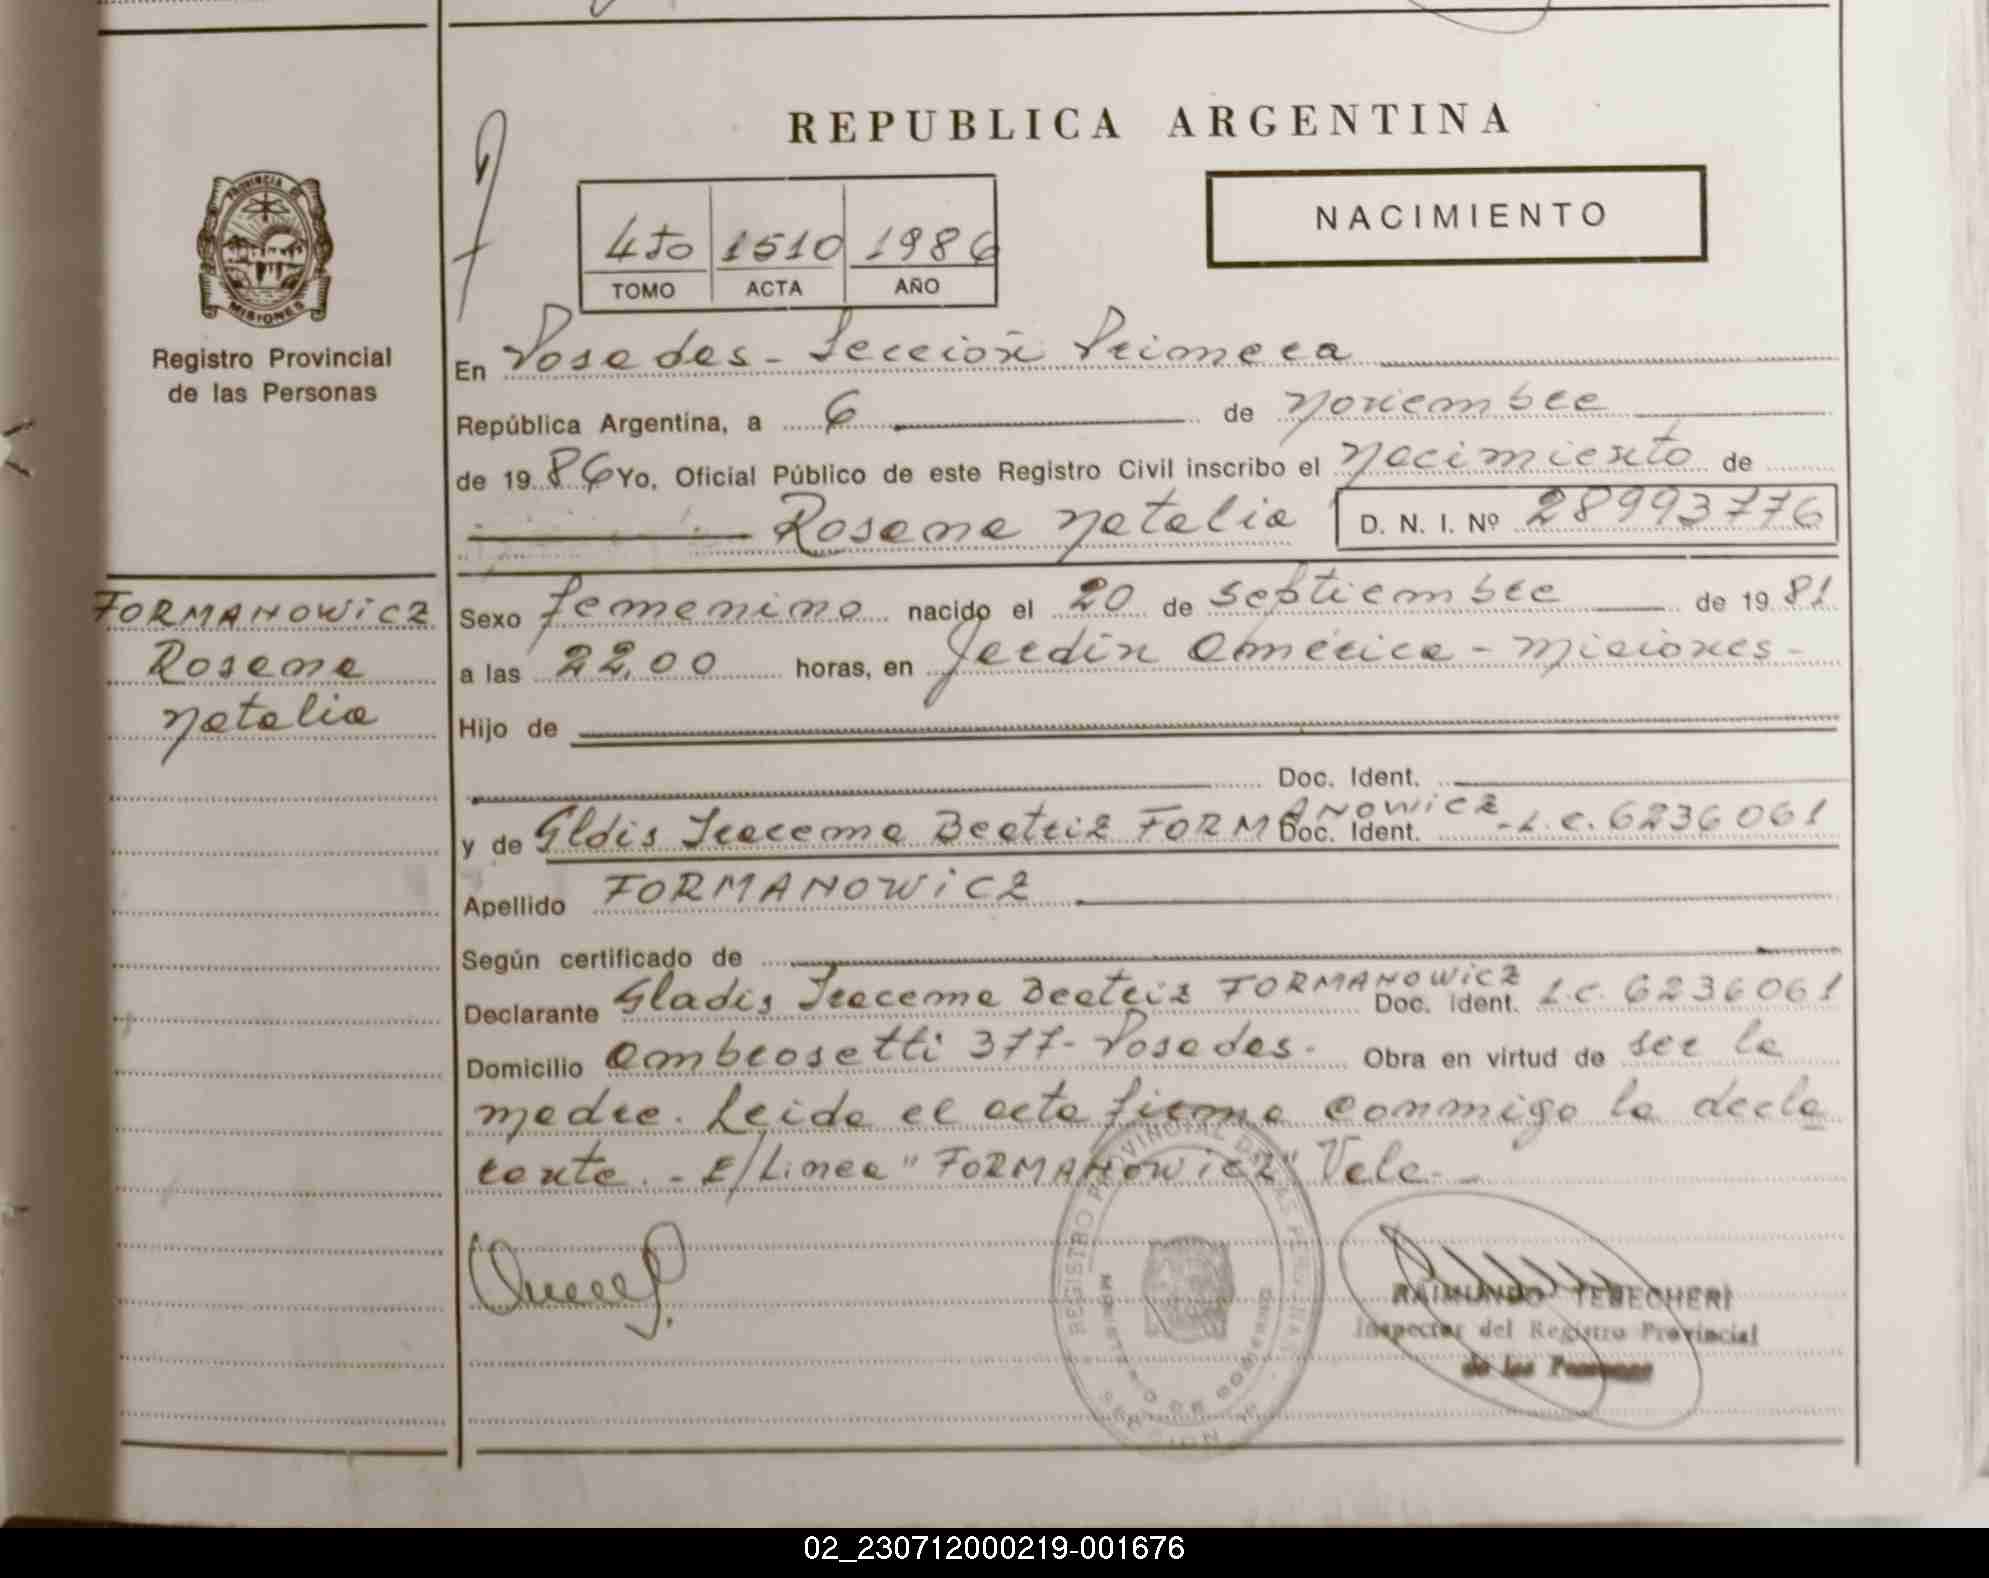 REPUBLICA ARGENTINA
NACIMIENTO
4to 1510 1986
TOMO ACTA AÑO
PROVINCIA DE
MISIONES
Registro Provincial
de las Personas
En Posadas - Sección Primera
República Argentina, a 6 de noviembre
de 1986 Yo, Oficial Público de este Registro Civil inscribo el nacimiento de
Rosana Natalia D. N. I. Nº 28993776
FORMANOWICZ
Rosana
Natalia
Sexo femenino nacido el 20 de septiembre de 1981
a las 22,00 horas, en Jardín América - Misiones -
Hijo de
Doc. Ident.
y de Gldis Iracema Beatriz FORMANOWICZ Doc. Ident. - L.C. 6236061
Apellido FORMANOWICZ
Según certificado de
Declarante Gladis Iracema Beatriz FORMANOWICZ Doc. Ident. L.C. 6236061
Domicilio Ambrosetti 377 - Posadas - Obra en virtud de ser la
madre. Leida el acta firma conmigo la decla
rante. - E/Linea "FORMANOWICZ" Vale -
REGISTRO PROVINCIAL DE LAS PERSONAS
MINISTERIO DE GOBIERNO
SECCION
RAIMUNDO TEBECHERI
Inspector del Registro Provincial
de las Personas
02_230712000219-001676